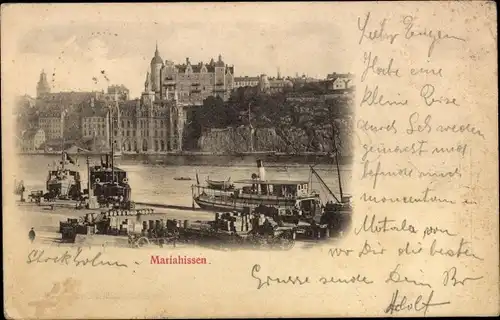 Lieber Eugen
Habe eine
kleine Reise
durch Schweden
gemacht und
befinde mich
momentan in
Motala von
wo Dir die besten
Grüsse sendet Dein Br
Adolf
Stockholm
Mariahissen.